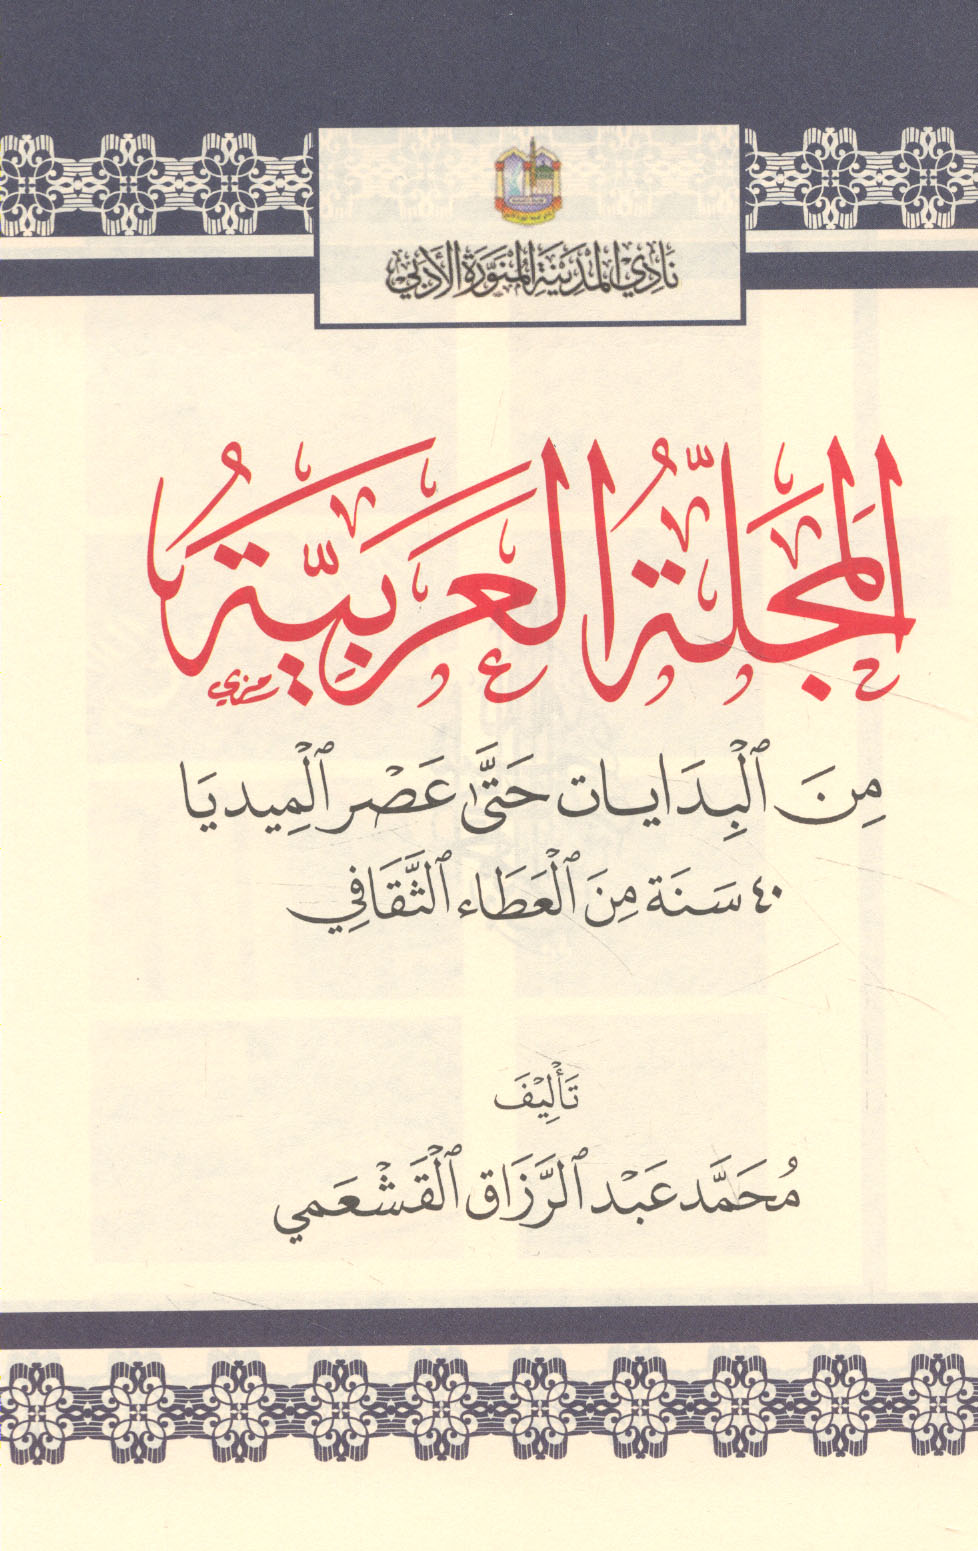 نَادِي المَدِينَةِ المُنَوَّرَةِ الأَدَبِي
المَجَلَّةُ العَرَبِيَّةُ
مِنَ ٱلْبِدَايـات حَتَّى عَصْر ٱلْمِيديَا
٤٠ سَنَة مِنَ ٱلْعَطَاء ٱلثَّقَافِي
تَأْلِيْفَ
مُحَمَّد عَبْد ٱلرَّزَاق ٱلْقَشْعَمِي